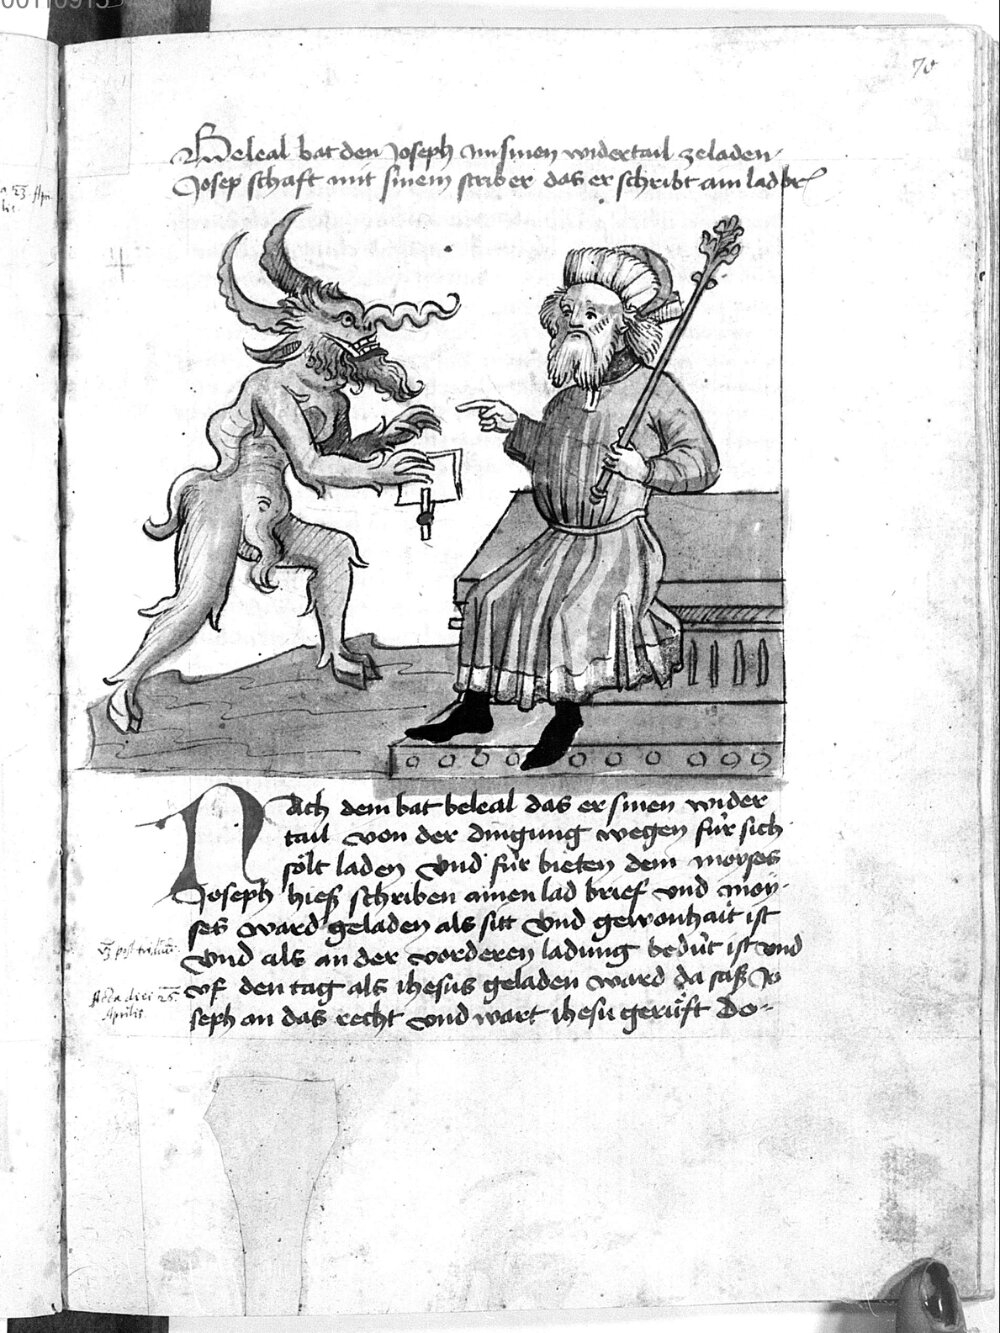 00110913
70
Beleal bat den Joseph im sinen widertail zeladen
Josep schaft mit sinem scriber das er schribt ain ladbr
Nach dem bat beleal das er sinen wider
tail von der dingung wegen für sich
sölt laden vnd für bieten dem moyses
Joseph hieß schriben ainen lad brief vnd moy-
ses ward geladen als sitt vnd gewonhait ist
vnd als an der vorderen ladung bedüt ist vnd
vf den tag als ihesus geladen ward da saß Jo
seph an das recht vnd wart ihesu gerüft Do-
Aprilis